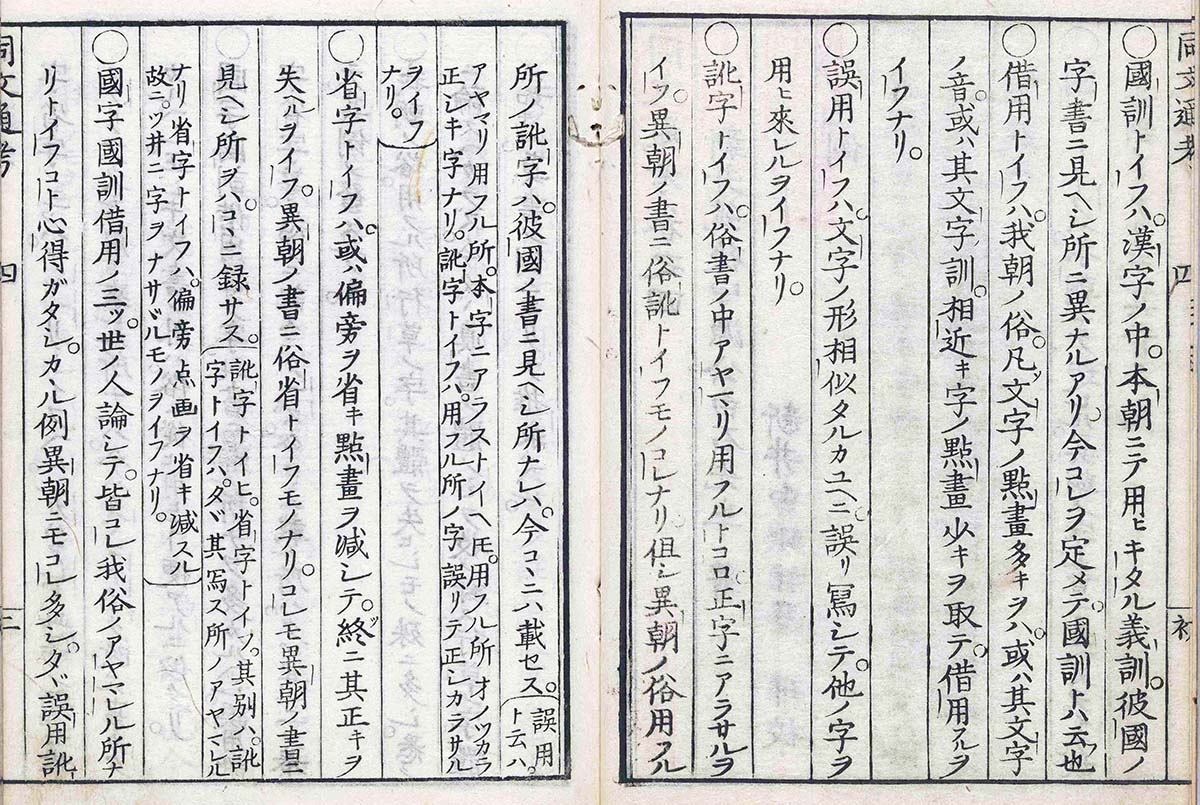 同文通考 四
〇國訓トイフハ。漢字ノ中。本朝ニテ用ヒキタル義訓。彼國ノ
字書ニ見ヘシ所ニ異ナルアリ。今コレヲ定メテ國訓トハ云也
〇借用トイフハ。我朝ノ俗。凡ソ文字ノ點畫多キヲハ。或ハ其文字
ノ音。或ハ其文字訓。相近キ字ノ點畫少キヲ取テ。借用スルヲ
イフナリ。
〇誤用トイフハ。文字ノ形相似タルカユヘニ。誤リ寫シテ。他ノ字ヲ
用ヒ來レルヲイフナリ。
〇訛字トイフハ。俗書ノ中アヤマリ用フルトコロ。正字ニアラサルヲ
イフ。異朝ノ書ニ俗訛トイフモノコレナリ。但シ異朝ノ俗用フル
所ノ訛字ハ。彼國ノ書ニ見ヘシ所ナレハ。今コヽニハ載セス。
誤用
ト云ハ。
アヤマリ用フル所。本字ニアラストイヘ𪜈。用フル所オノツカラ
正シキ字ナリ。訛字トイフハ。用フル所ノ字誤リテ正シカラサル
ヲイフ
ナリ。
〇省字トイフハ。或ハ偏旁ヲ省キ點畫ヲ減シテ。終ニ其正キヲ
失ヘルヲイフ。異朝ノ書ニ俗省トイフモノナリ。コレモ異朝ノ書ニ
見ヘシ所ヲハ。コヽニ録サス。
訛字トイヒ。省字トイフ。其別ハ。訛
字トイフハ。タヾ其寫ス所ノアヤマレル
ナリ省字トイフハ。偏旁点画ヲ省キ減スル
故ニ。ツ井ニ字ヲナサヾルモノヲイフナリ。
〇國字國訓借用ノ三ツ。世ノ人論シテ。皆コレ我俗ノアヤマレル所ナ
リトイフコト心得ガタシ。カヽル例異朝ニモコレ多シ。タヾ誤用訛
同文通考 四 三